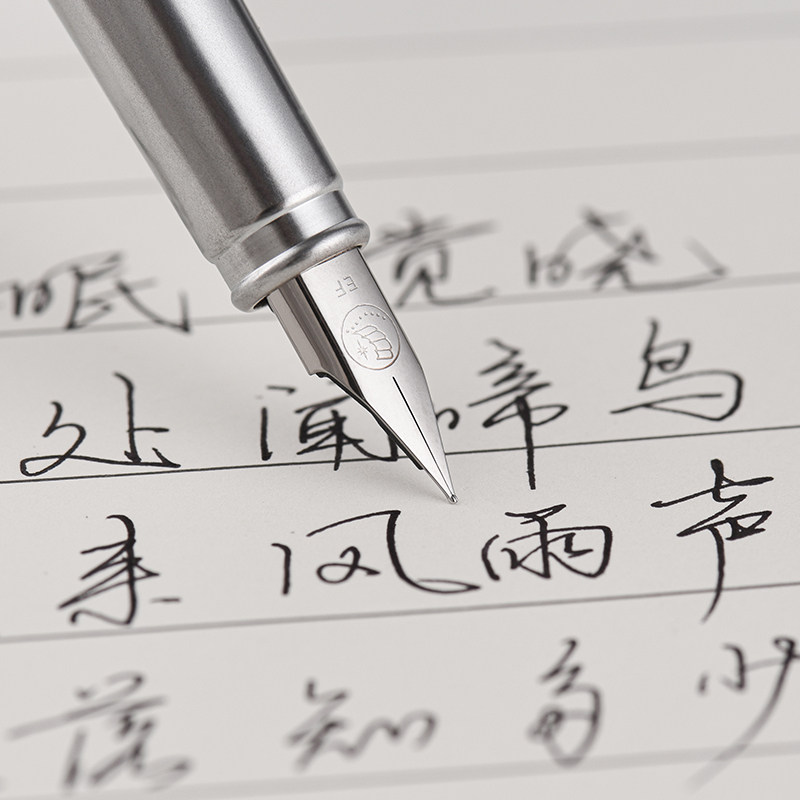 眠觉晓
处闻啼鸟
EF
来风雨声
落知多少